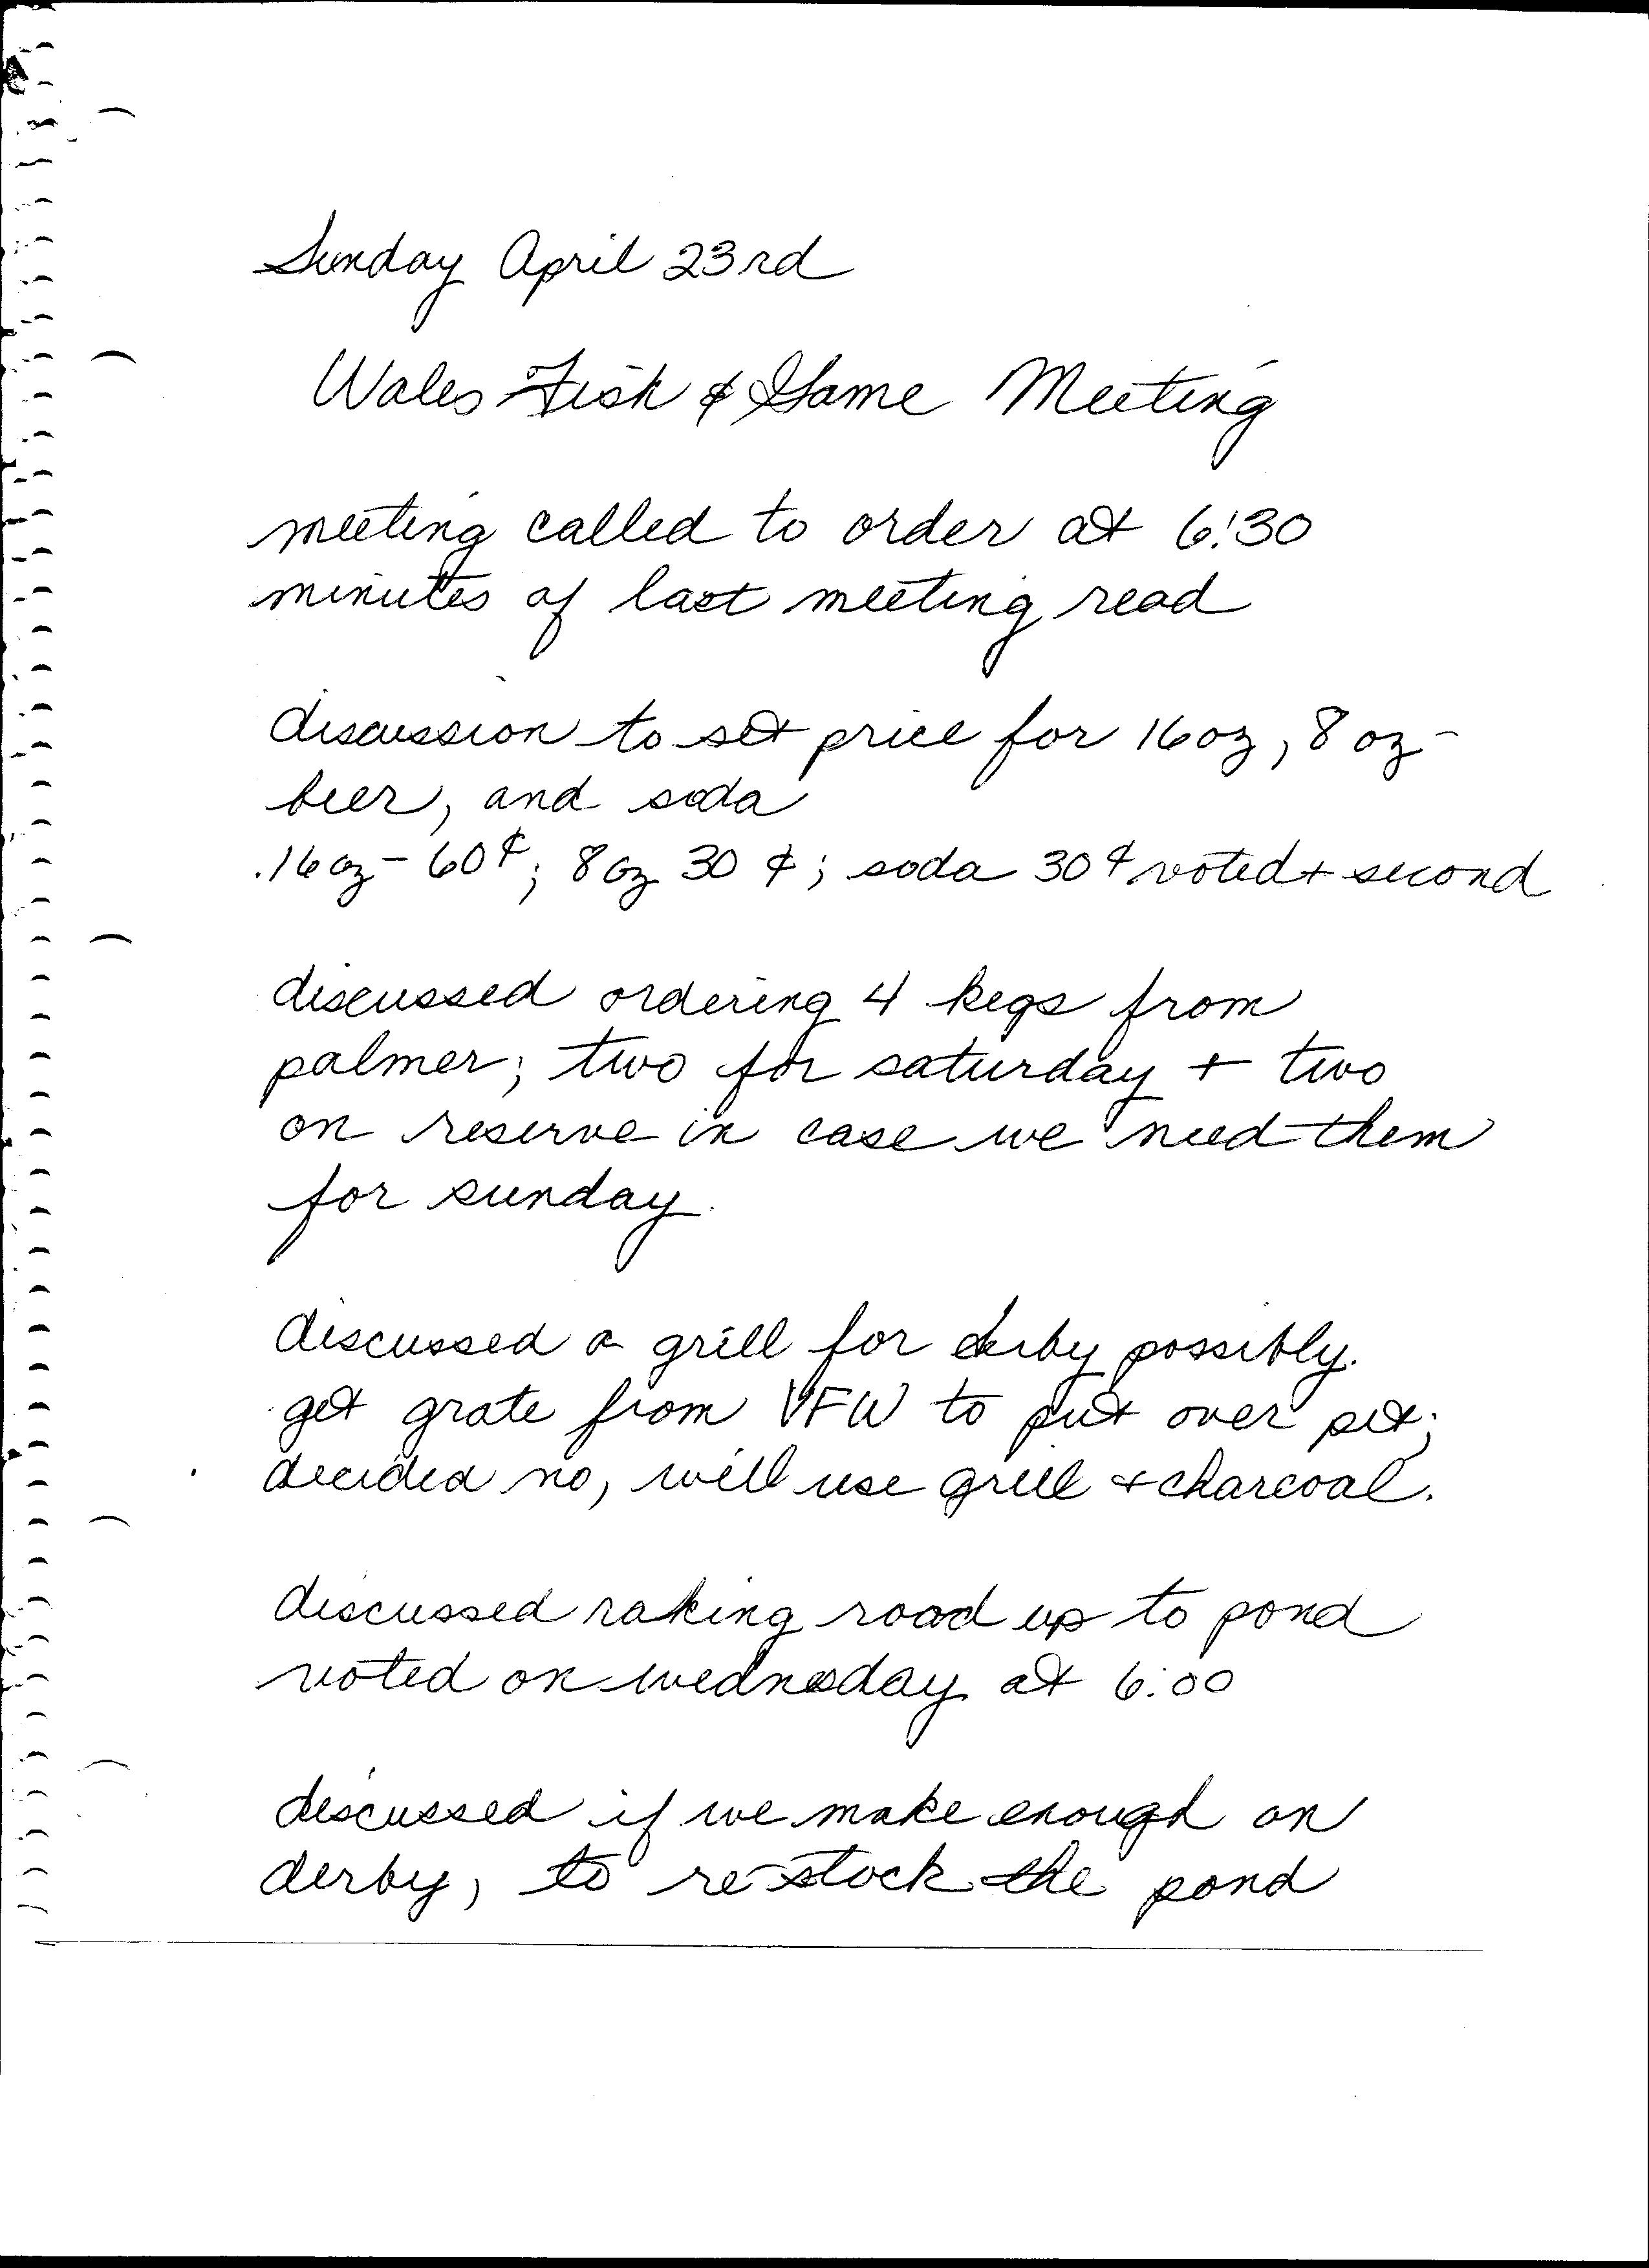 Sunday April 23rd
Wales Fish & Game Meeting
meeting called to order at 6:30
minutes of last meeting read
discussion to set price for 16 oz, 8 oz -
beer, and soda
16 oz - 60¢; 8 oz 30 ¢; soda 30¢ voted + second
discussed ordering 4 kegs from
palmer; two for saturday + two
on reserve in case we need them
for sunday.
discussed a grill for derby possibly.
get grate from VFW to put over pit;
decided no, will use grill + charcoal.
discussed raking road up to pond
voted on wednesday at 6:00
discussed if we make enough on
derby, to re-stock the pond